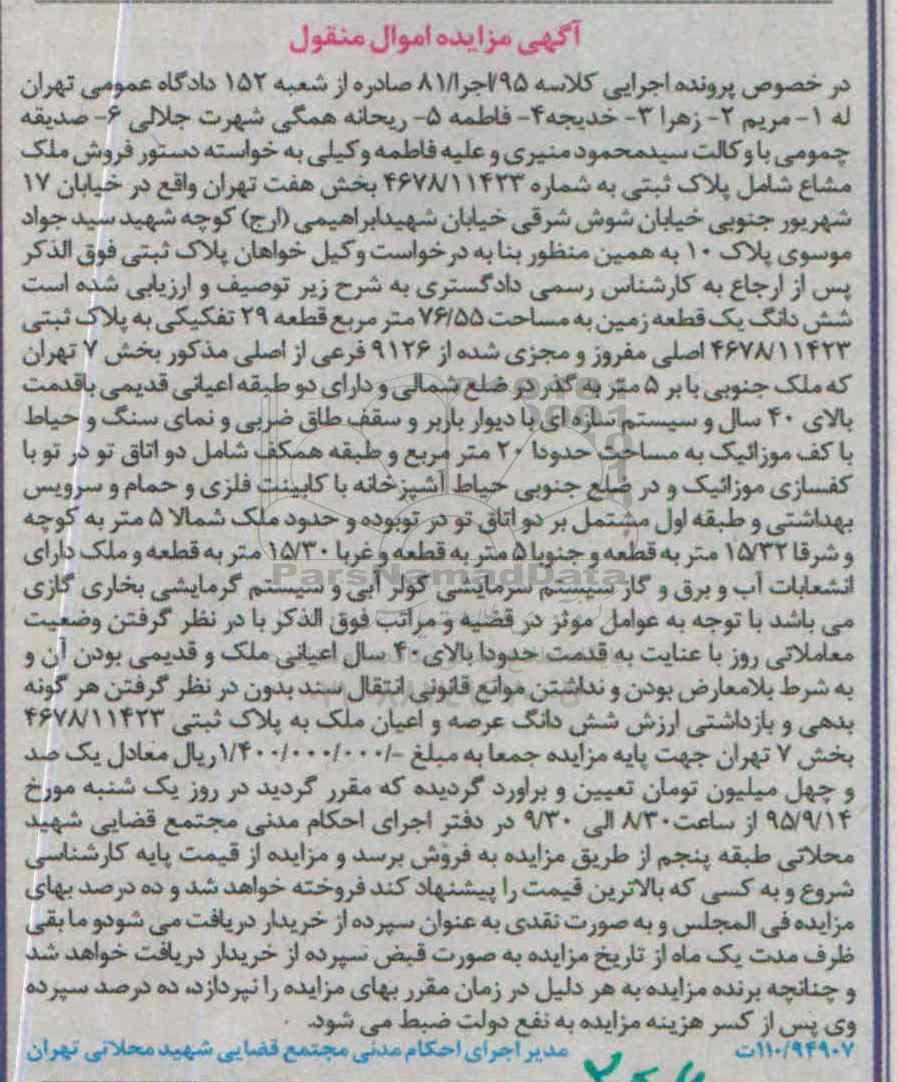 آگهی مزایده اموال منقول
در خصوص پرونده اجرایی کلاسه ۹۵/اجرا/۸۱ صادره از شعبه ۱۵۲ دادگاه عمومی تهران
له ۱- مریم ۲- زهرا ۳- خدیجه۴- فاطمه ۵- ریحانه همگی شهرت جلالی ۶- صدیقه
چمومی با وکالت سیدمحمود منیری و علیه فاطمه وکیلی به خواسته دستور فروش ملک
مشاع شامل پلاک ثبتی به شماره ۴۶۷۸/۱۱۴۲۳ بخش هفت تهران واقع در خیابان ۱۷
شهریور جنوبی خیابان شوش شرقی خیابان شهیدابراهیمی (ارج) کوچه شهید سید جواد
موسوی پلاک ۱۰ به همین منظور بنا به درخواست وکیل خواهان پلاک ثبتی فوق الذکر
پس از ارجاع به کارشناس رسمی دادگستری به شرح زیر توصیف و ارزیابی شده است
شش دانگ یک قطعه زمین به مساحت ۷۶/۵۵ متر مربع قطعه ۲۹ تفکیکی به پلاک ثبتی
۴۶۷۸/۱۱۴۲۳ اصلی مفروز و مجزی شده از ۹۱۲۶ فرعی از اصلی مذکور بخش ۷ تهران
که ملک جنوبی با بر ۵ متر به گذر در ضلع شمالی و دارای دو طبقه اعیانی قدیمی باقدمت
بالای ۴۰ سال و سیستم سازه ای با دیوار باربر و سقف طاق ضربی و نمای سنگ و حیاط
با کف موزائیک به مساحت حدودا ۲۰ متر مربع و طبقه همکف شامل دو اتاق تو در تو با
کفسازی موزائیک و در ضلع جنوبی حیاط آشپزخانه با کابینت فلزی و حمام و سرویس
بهداشتی و طبقه اول مشتمل بر دو اتاق تو در توبوده و حدود ملک شمالا ۵ متر به کوچه
و شرقا ۱۵/۳۲ متر به قطعه و جنوبا ۵ متر به قطعه و غربا ۱۵/۳۰ متر به قطعه و ملک دارای
انشعابات آب و برق و گاز سیستم سرمایشی کولر آبی و سیستم گرمایشی بخاری گازی
می باشد با توجه به عوامل موثر در قضیه و مراتب فوق الذکر با در نظر گرفتن وضعیت
معاملاتی روز با عنایت به قدمت حدودا بالای ۴۰ سال اعیانی ملک و قدیمی بودن آن و
به شرط بلامعارض بودن و نداشتن موانع قانونی انتقال سند بدون در نظر گرفتن هر گونه
بدهی و بازداشتی ارزش شش دانگ عرصه و اعیان ملک به پلاک ثبتی ۴۶۷۸/۱۱۴۲۳
بخش ۷ تهران جهت پایه مزایده جمعا به مبلغ -/۱/۴۰۰/۰۰۰/۰۰۰ ریال معادل یک صد
و چهل میلیون تومان تعیین و براورد گردیده که مقرر گردید در روز یک شنبه مورخ
۹۵/۹/۱۴ از ساعت۸/۳۰ الی ۹/۳۰ در دفتر اجرای احکام مدنی مجتمع قضایی شهید
محلاتی طبقه پنجم از طریق مزایده به فروش برسد و مزایده از قیمت پایه کارشناسی
شروع و به کسی که بالاترین قیمت را پیشنهاد کند فروخته خواهد شد و ده درصد بهای
مزایده فی المجلس و به صورت نقدی به عنوان سپرده از خریدار دریافت می شودو مابقی
ظرف مدت یک ماه از تاریخ مزایده به صورت قبض سپرده از خریدار دریافت خواهد شد
و چنانچه برنده مزایده به هر دلیل در زمان مقرر بهای مزایده را نپردازد، ده درصد سپرده
وی پس از کسر هزینه مزایده به نفع دولت ضبط می شود.
۱۱۰/۹۴۹۰۷ت مدیر اجرای احکام مدنی مجتمع قضایی شهید محلاتی تهران
ParsNamadData